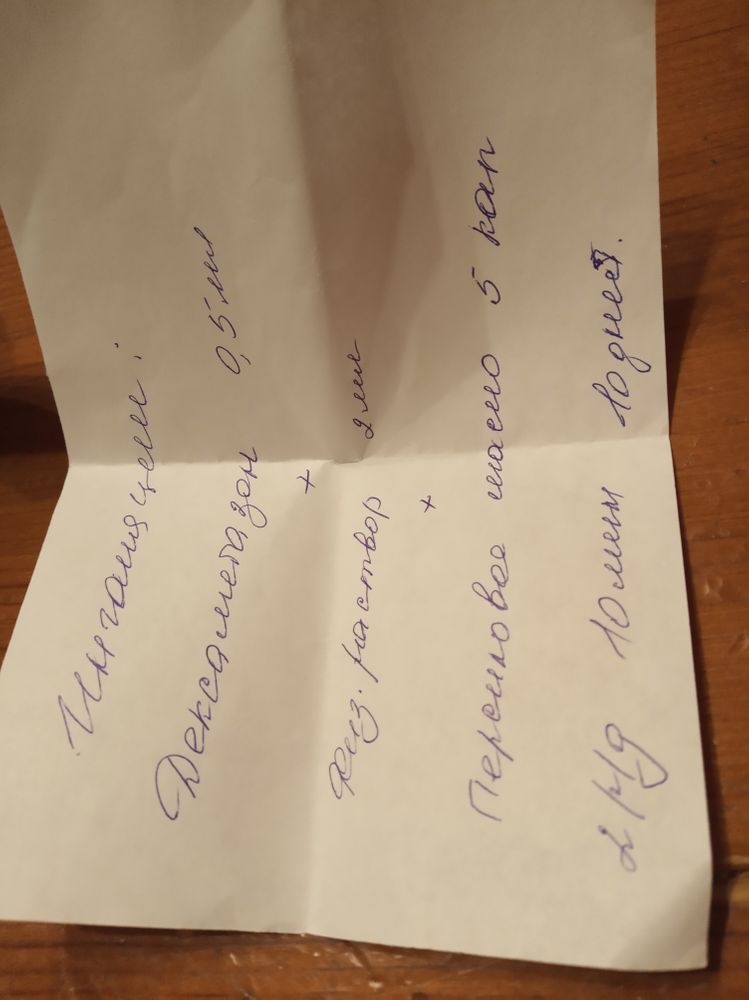 Ингаляции:
Дексаметазон 0,5 мл
+
Физ. раствор 2 мл
+
Персиковое масло 5 кап
2 р/д 10 мин 10 дней.